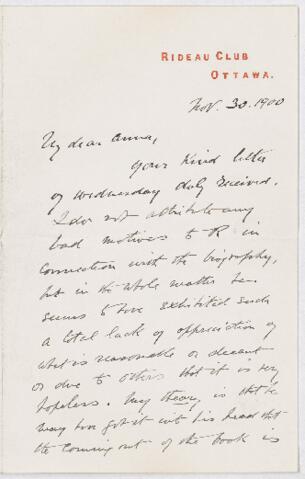 RIDEAU CLUB
OTTAWA.
Nov. 30. 1900
My dear Anna,
Your kind letter
of Wednesday duly received.
I do not attribute any
bad motives to R in
connection with the biography,
but in the whole matter he
seems to have exhibited such
a total lack of appreciation of
what is reasonable or decent
or due to others that it is very
hopeless. My theory is that he
may have got it into his head that
the coming out of the book is